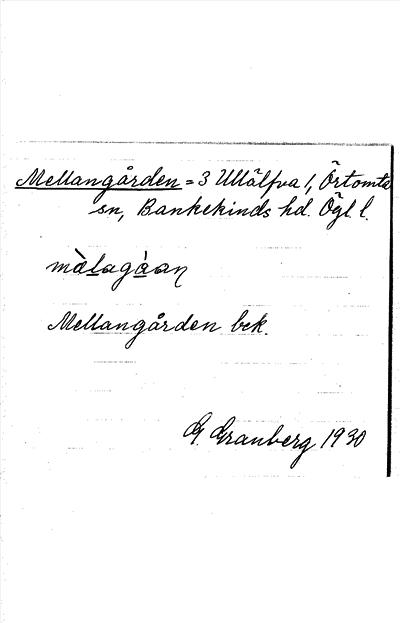 Mellangården = 3 Ullälfva 1, Örtomta
sn, Bankekinds hd. Ögl. l.
mæ̀lagàan
Mellangården bek.
G. Granberg 1930